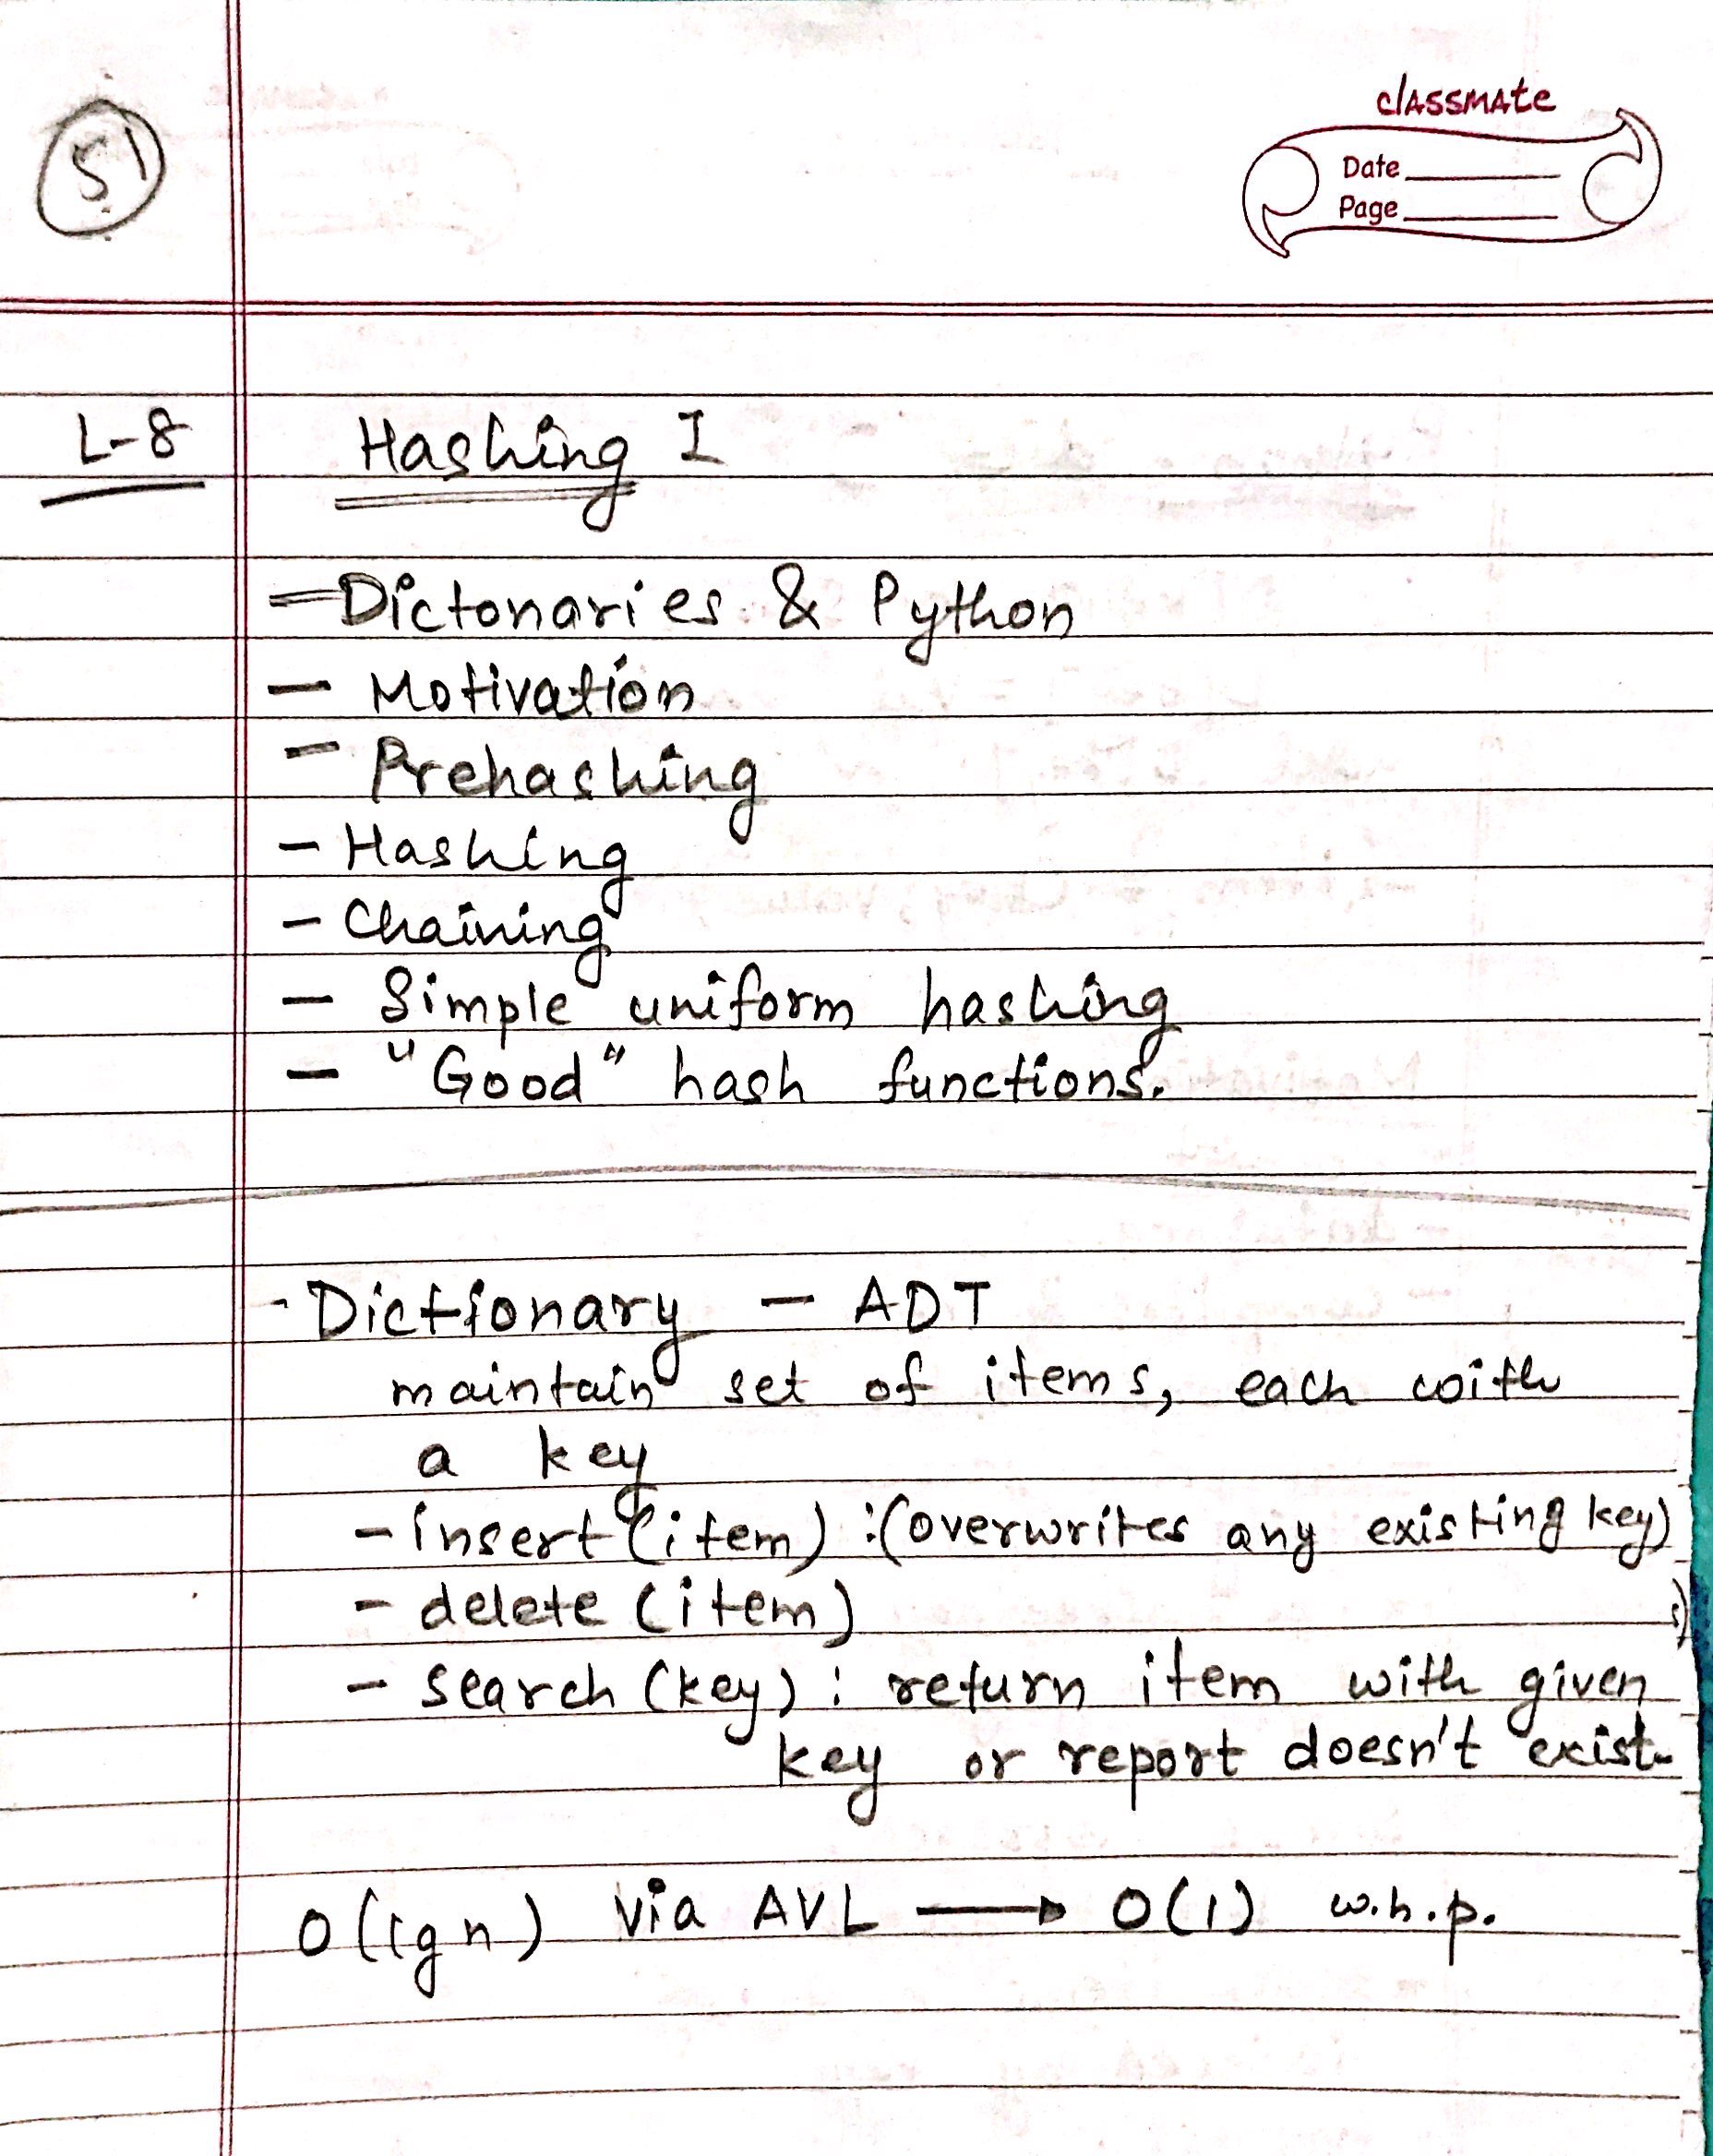 51
classmate
Date
Page
L-8 Hashing I
- Dictonaries & Python
- Motivation
- Prehashing
- Hashing
- Chaining
- Simple uniform hashing
- "Good" hash functions.
- Dictionary - ADT
maintain set of items, each with
a key
- insert (item) : (overwrites any existing key)
- delete (item)
- search (key) : return item with given
key or report doesn't exist.
O(lgn) via AVL → O(1) w.h.p.